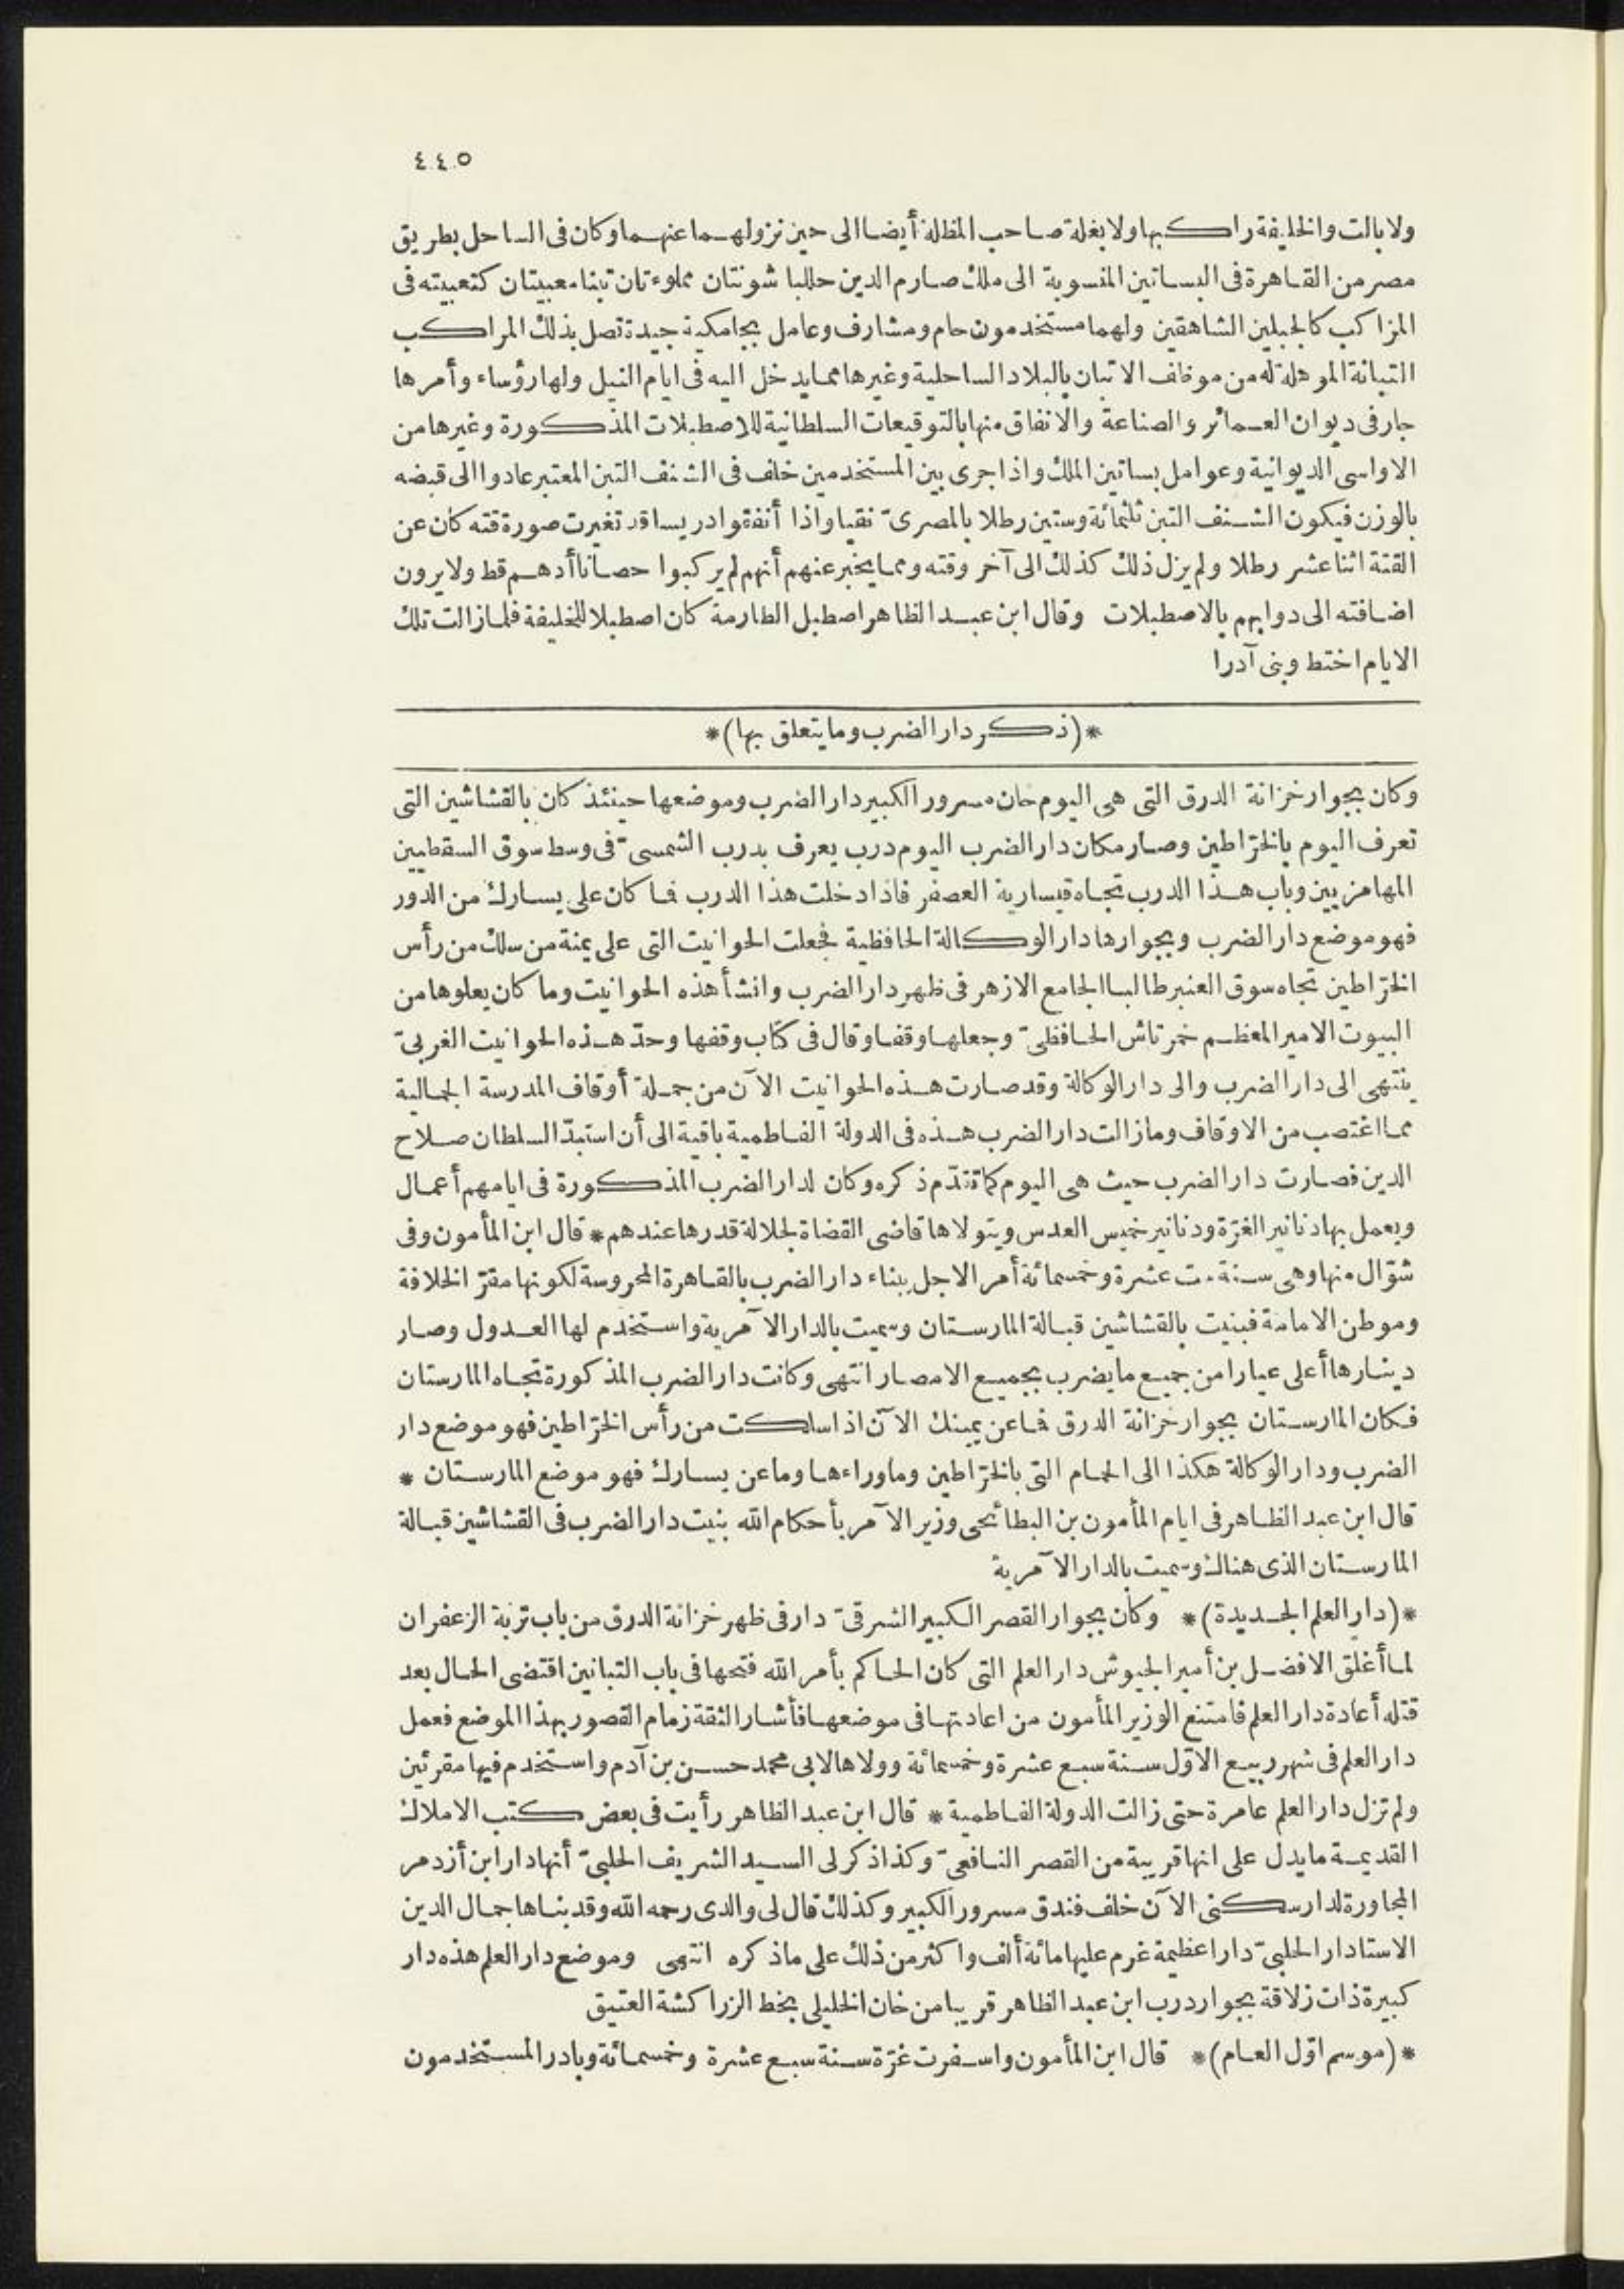 ٤٤٥
ولا بالت والخليفة راكبها ولا بغلة صاحب المظلة أيضا الى حين نزولهما عنهما وكان فى الساحل بطريق
مصر من القاهرة فى البساتين المنسوبة الى ملك صارم الدين حللبا شونتان مملوءتان تبنا معبيتان كتعبيته فى
المراكب كالجبلين الشاهقين ولهما مستخدمون حام ومشارف وعامل بجامكية جيدة تصل بذلك المراكب
التبانة الموهلة له من موظف الاتبان بالبلاد الساحلية وغيرها مما يدخل اليه فى ايام النيل ولها رؤساء وأمرها
جار فى ديوان العمائر والصناعة والانفاق منها بالتوقيعات السلطانية للاصطبلات المذكورة وغيرها من
الاواسى الديوانية وعوامل بساتين الملك واذا جرى بين المستخدمين خلف فى الشنف التبن المعتبر عادوا الى قبضه
بالوزن فيكون الشنف التبن ثلثمائة وستين رطلا بالمصرىّ نقيا واذا أنفقوا دريسا قد تغيرت صورة قته كان عن
القتة اثنا عشر رطلا ولم يزل ذلك كذلك الى آخر وقته ومما يخبر عنهم أنهم لم يركبوا حصانا أدهم قط ولا يرون
اضافته الى دوابهم بالاصطبلات وقال ابن عبد الظاهر اصطبل الطارمة كان اصطبلا للخليفة فلما زالت تلك
الايام اختط وبنى آدرا
*(ذكر دار الضرب وما يتعلق بها)*
وكان بجوار خزانة الدرق التى هى اليوم خان مسرور الكبير دار الضرب وموضعها حينئذ كان بالقشاشين التى
تعرف اليوم بالخرّاطين وصار مكان دار الضرب اليوم درب يعرف بدرب الشمسىّ فى وسط سوق السقطيين
المهامزيين وباب هذا الدرب تجاه قيسارية العصفر فاذا دخلت هذا الدرب فما كان على يسارك من الدور
فهو موضع دار الضرب وبجوارها دار الوكالة الحافظية فجعلت الحوانيت التى على يمنة من سلك من رأس
الخرّاطين تجاه سوق العنبر طالبا الجامع الازهر فى ظهر دار الضرب وانشأ هذه الحوانيت وما كان يعلوها من
البيوت الامير المعظم خمرتاش الحافظىّ وجعلها وقفا وقال فى كتاب وقفها وحدّ هذه الحوانيت الغربىّ
ينتهى الى دار الضرب والى دار الوكالة وقد صارت هذه الحوانيت الآن من جملة أوقاف المدرسة الجمالية
مما اغتصب من الاوقاف وما زالت دار الضرب هذه فى الدولة الفاطمية باقية الى أن استبدّ السلطان صلاح
الدين فصارت دار الضرب حيث هى اليوم كما تقدّم ذكره وكان لدار الضرب المذكورة فى ايامهم أعمال
ويعمل بها دنانير الغرّة ودنانير خميس العدس ويتولاها قاضى القضاة لجلالة قدرها عندهم * قال ابن المأمون وفى
شوّال منها وهى سنة ست عشرة وخمسمائة أمر الاجل ببناء دار الضرب بالقاهرة المحروسة لكونها مقرّ الخلافة
وموطن الامامة فبنيت بالقشاشين قبالة المارستان وسميت بالدار الآمرية واستخدم لها العدول وصار
دينارها أعلى عيارا من جميع ما يضرب بجميع الامصار انتهى وكانت دار الضرب المذكورة تجاه المارستان
فكان المارستان بجوار خزانة الدرق فما عن يمينك الآن اذا سلكت من رأس الخرّاطين فهو موضع دار
الضرب ودار الوكالة هكذا الى الحمام التى بالخرّاطين وما وراءها وما عن يسارك فهو موضع المارستان *
قال ابن عبد الظاهر فى ايام المأمون بن البطائحى وزير الآمر بأحكام الله بنيت دار الضرب فى القشاشين قبالة
المارستان الذى هنالك وسميت بالدار الآمرية
*(دار العلم الجديدة)* وكان بجوار القصر الكبير الشرقىّ دار فى ظهر خزانة الدرق من باب تربة الزعفران
لما أغلق الافضل بن أمير الجيوش دار العلم التى كان الحاكم بأمر الله فتحها فى باب التبانين اقتضى الحال بعد
قتله أعادة دار العلم فامتنع الوزير المأمون من اعادتها فى موضعها فأشار الثقة زمام القصور بهذا الموضع فعمل
دار العلم فى شهر ربيع الاوّل سنة سبع عشرة وخمسمائة وولاها لابى محمد حسن بن آدم واستخدم فيها مقرئين
ولم تزل دار العلم عامرة حتى زالت الدولة الفاطمية * قال ابن عبد الظاهر رأيت فى بعض كتب الاملاك
القديمة ما يدل على انها قريبة من القصر النافعىّ وكذا ذكر لى السيد الشريف الحلبىّ أنها دار ابن أزدمر
المجاورة لدار سكنى الآن خلف فندق مسرور الكبير وكذلك قال لى والدى رحمه الله وقد بناها جمال الدين
الاستادار الحلبىّ دارا عظيمة غرم عليها مائة ألف واكثر من ذلك على ما ذكره انتهى وموضع دار العلم هذه دار
كبيرة ذات زلاقة بجوار درب ابن عبد الظاهر قريبا من خان الخليلى بخط الزراكشة العتيق
*(موسم اوّل العام)* قال ابن المأمون واسفرت غرّة سنة سبع عشرة وخمسمائة وبادر المستخدمون